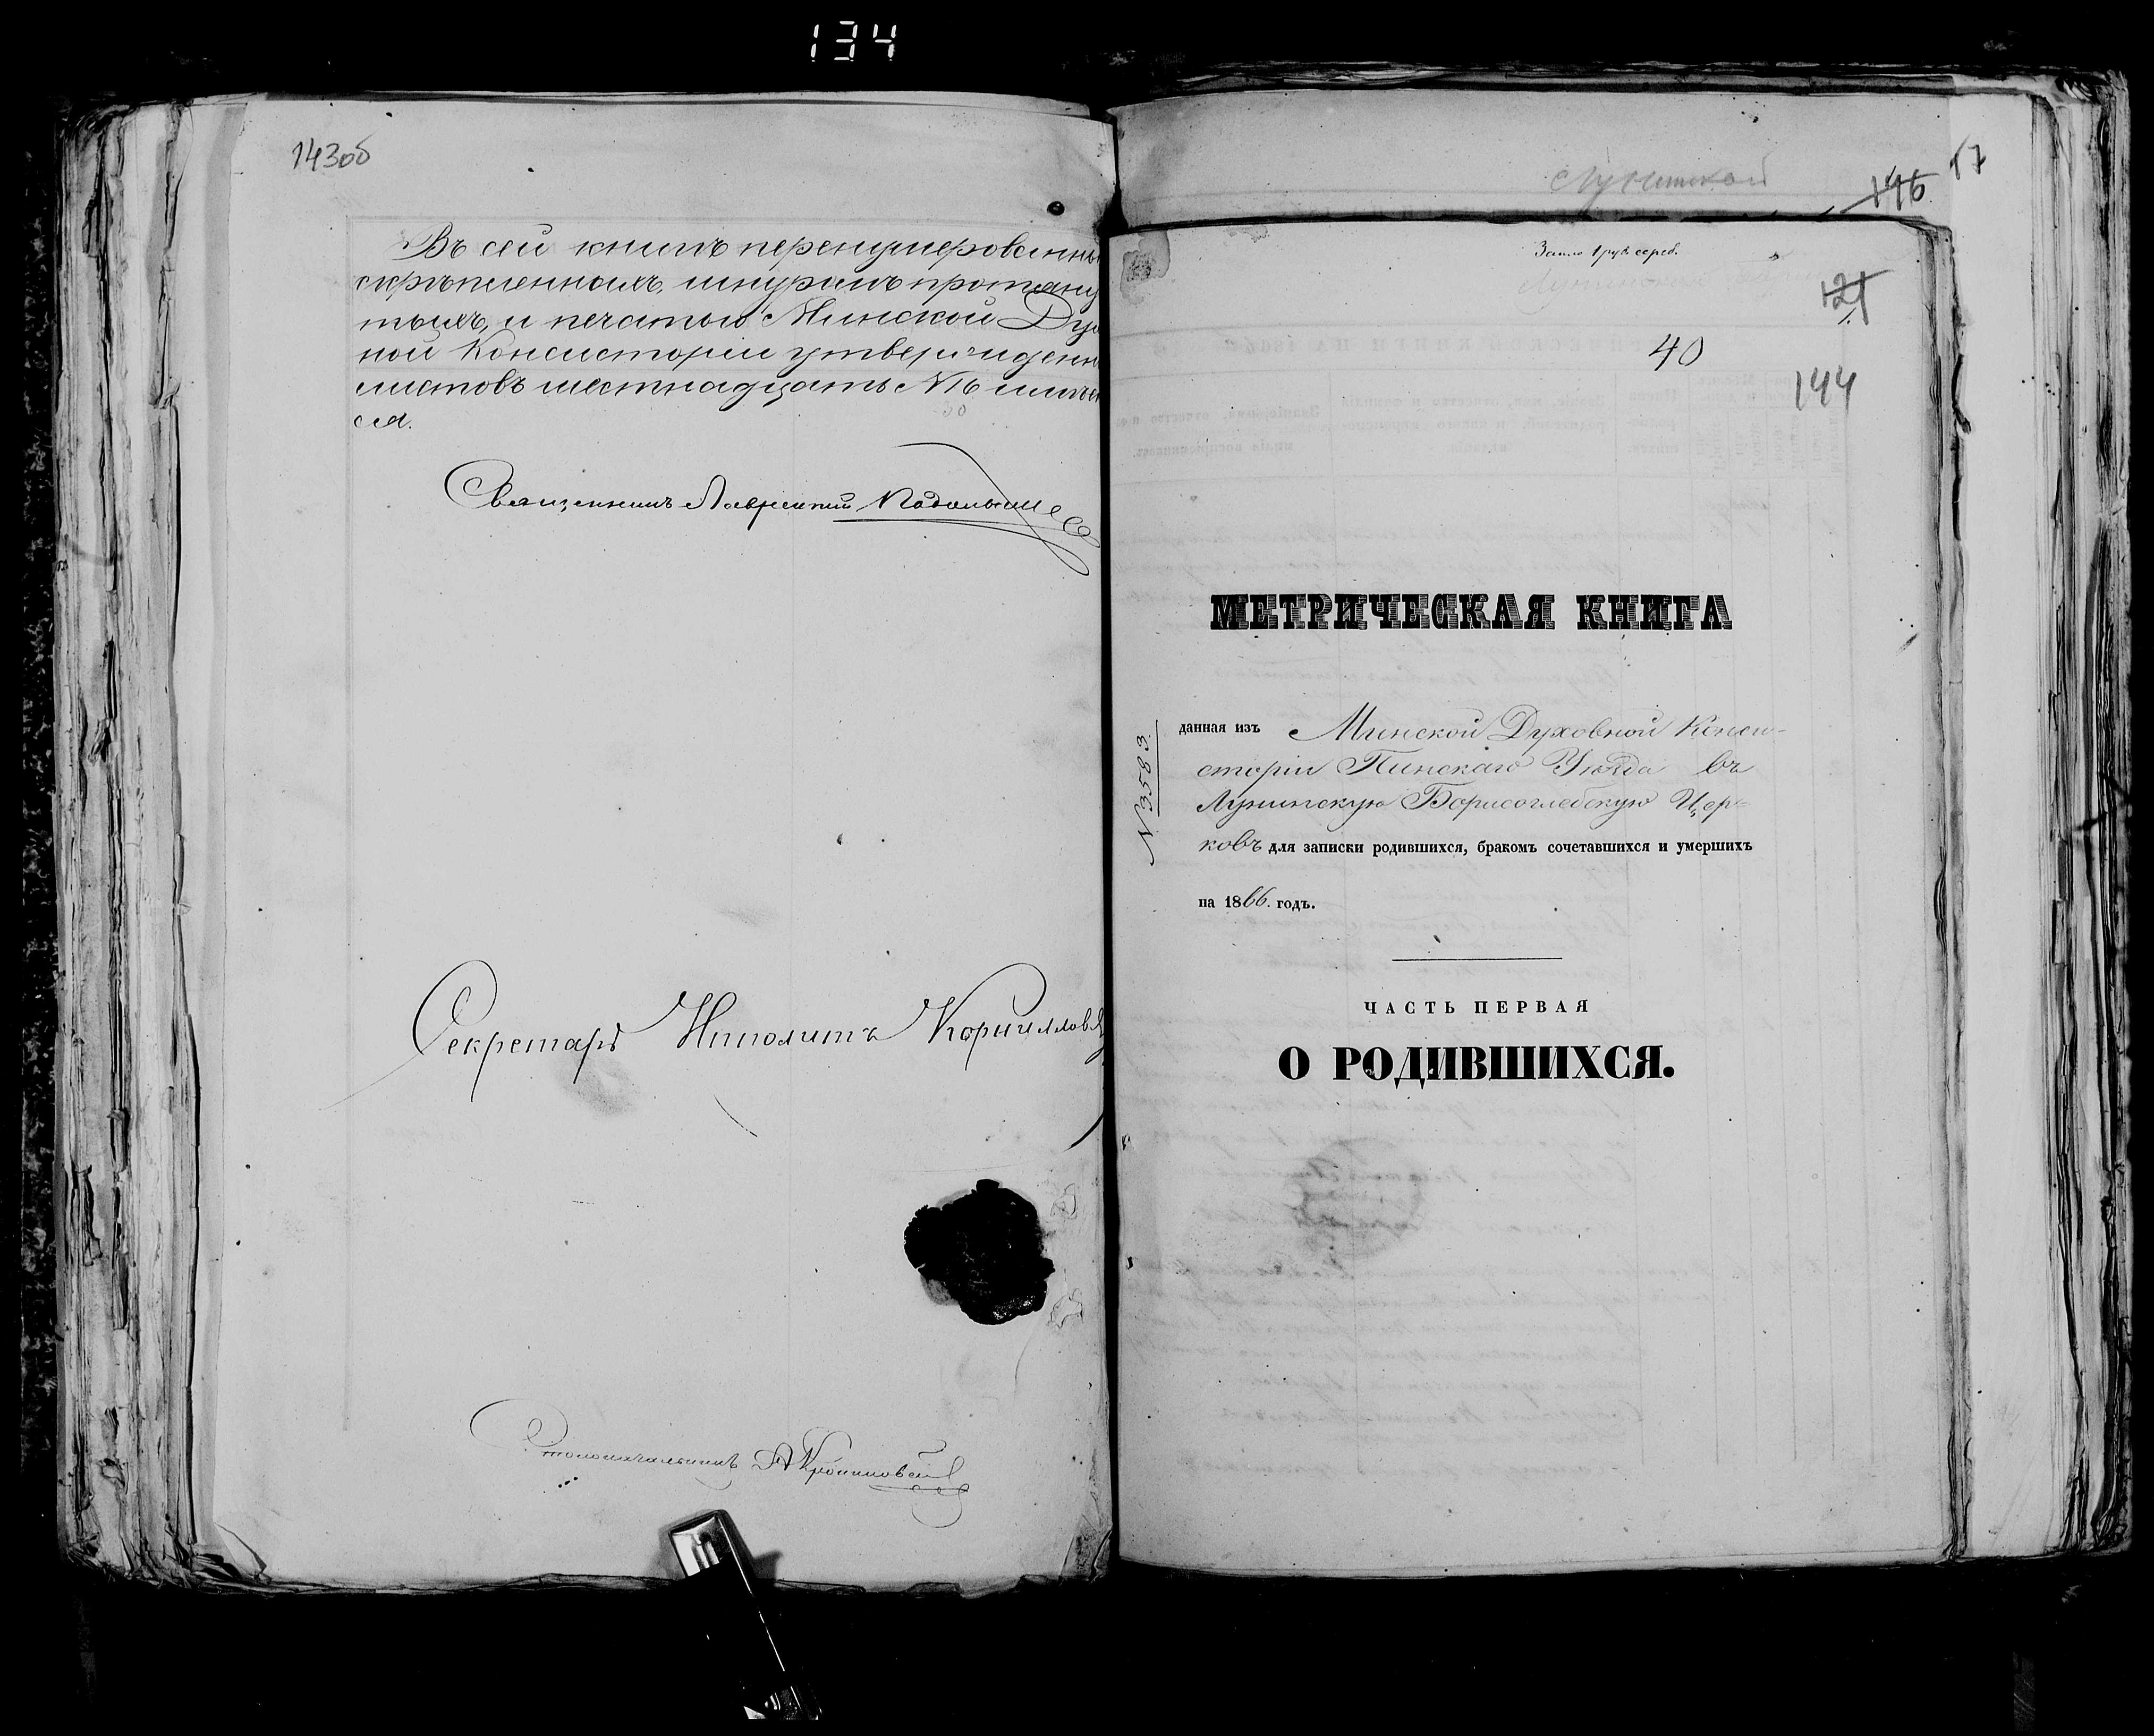 134
143об
Въ сей книгѣ перенумерованны
скрѣпленныхъ, шнуромъ протяну
тыхъ, и печатью Минской Духо
ной Консисторіи утвержденн
листовъ шестнадцать №16 имѣет
ся.
Священникъ Лаврентій
Секретарь Ипполитъ
Столоначальникъ
17
146
Запло 1 руб. сереб.
121
40
144
МЕТРИЧЕСКАЯ КНИГА
№ 3583
данная изъ Минской Духовной Конси-
сторіи Пинскаго Уѣзда въ
Лунинскую Борисоглебскую Цер-
ковь для записки родившихся, бракомъ сочетавшихся и умершихъ
на 1866. годъ.
ЧАСТЬ ПЕРВАЯ
О РОДИВШИХСЯ.